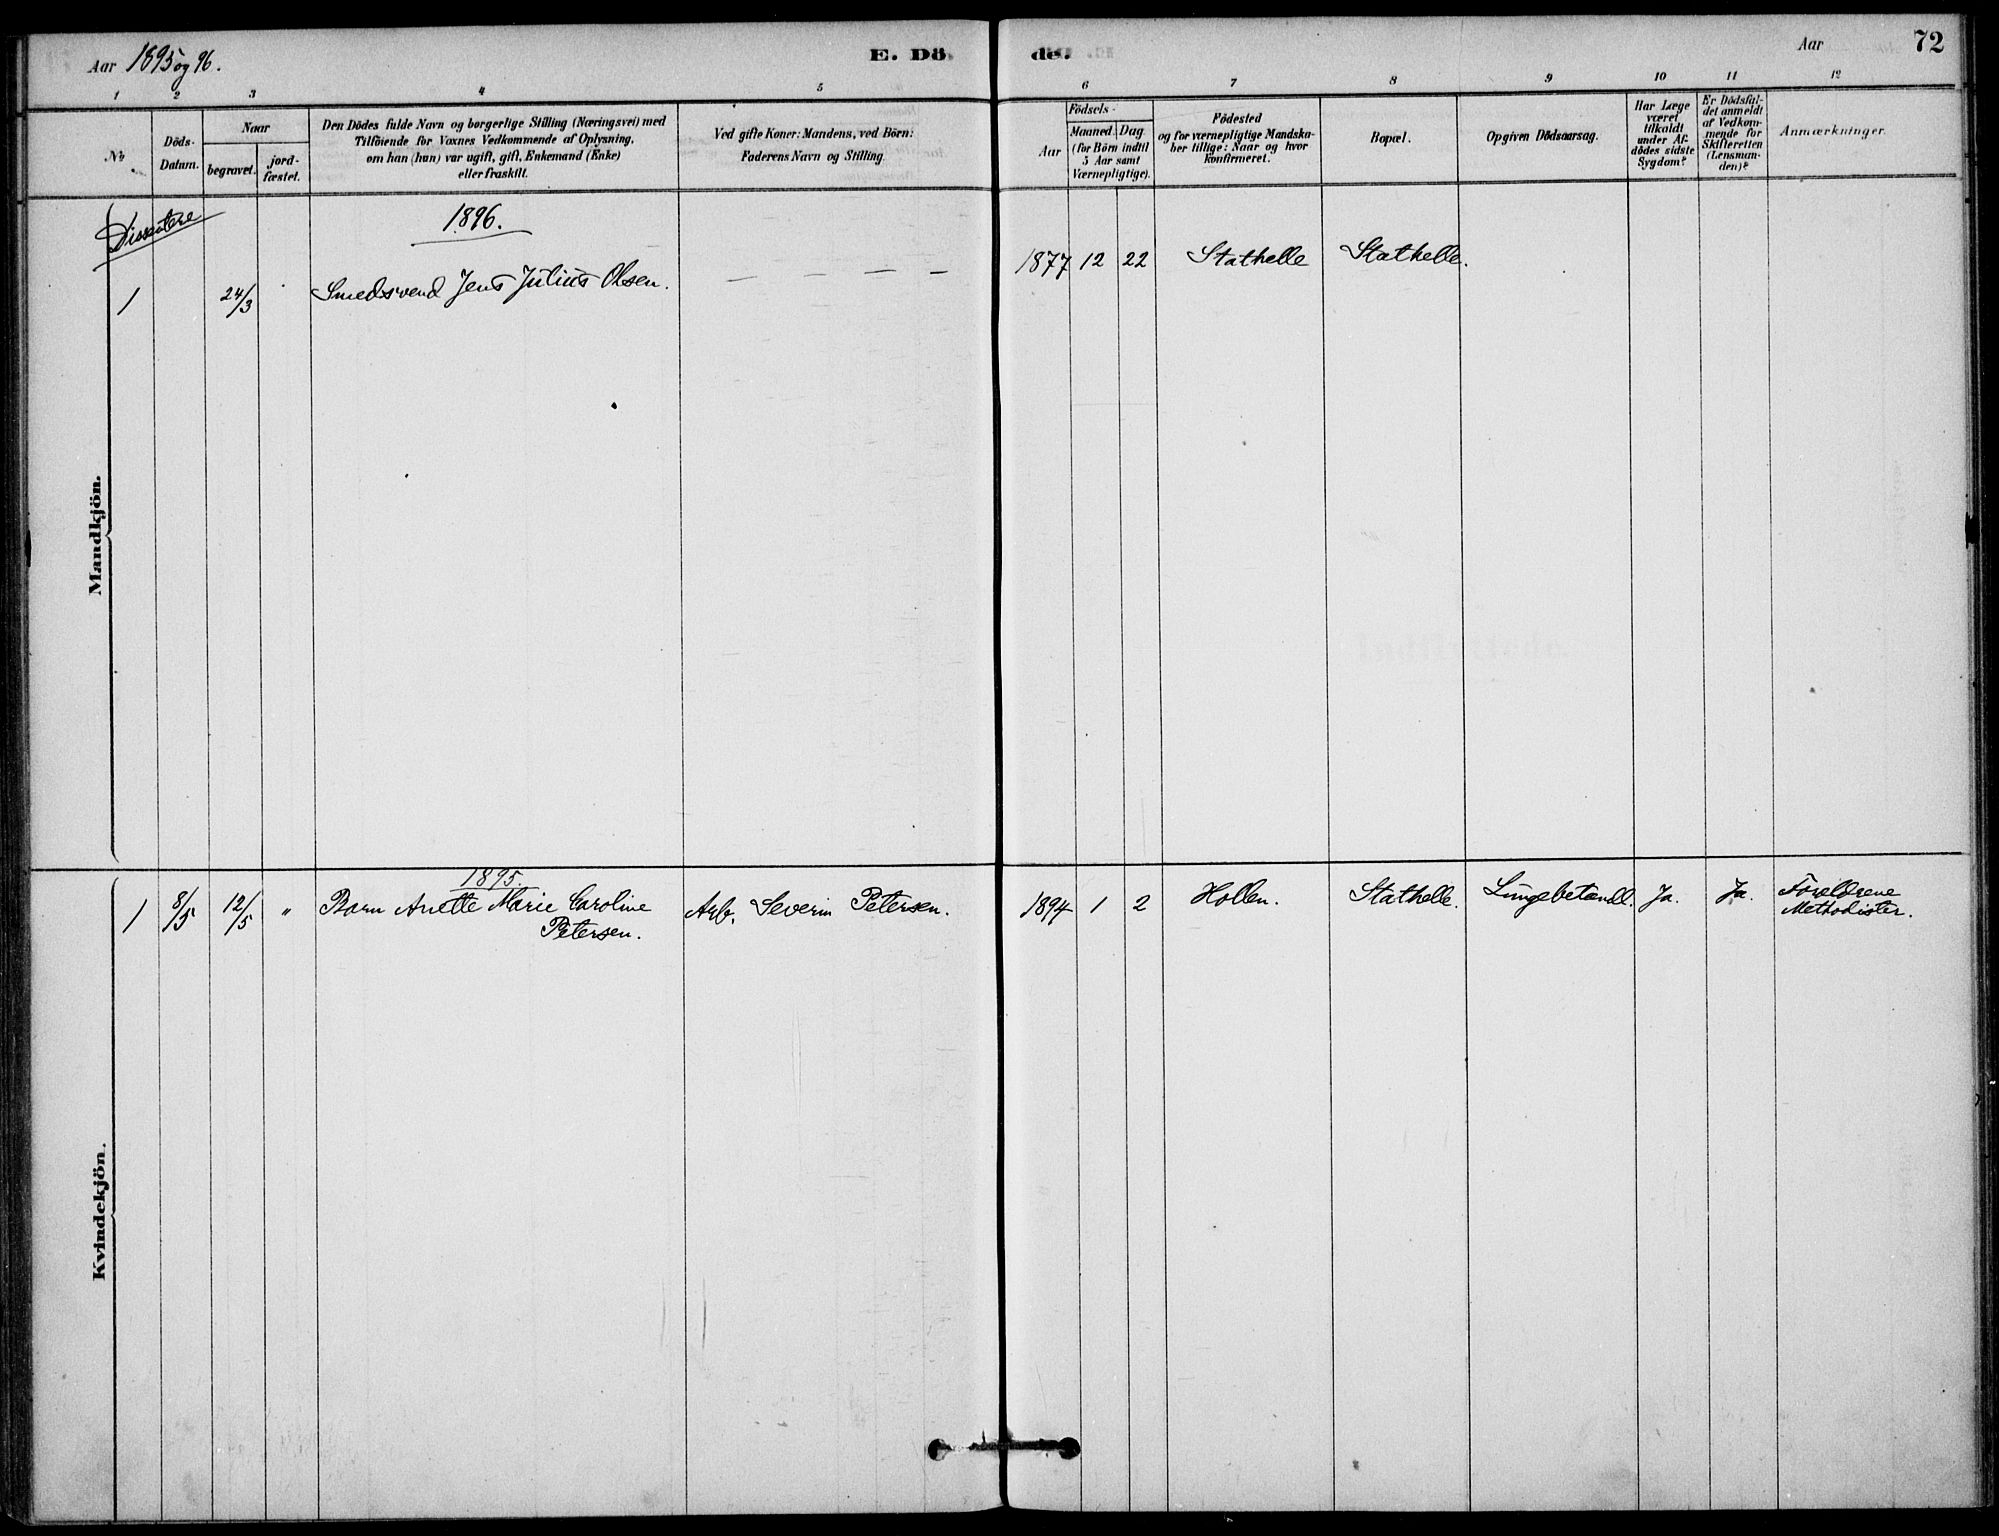 Aar 1895 og 96.
E. Döde.
Aar
72
1 2 3 4 5 6 7 8 9 10 11 12
No
Döds-
Datum.
Naar
begravet.
jord-
fæstet.
Den Dödes fulde Navn og borgerlige Stilling (Næringsvei) med
Tilföiende for Voxnes Vedkommende af Oplysning,
om han (hun) var ugift, gift, Enkemand (Enke)
eller fraskilt.
Ved gifte Koner: Mandens, ved Börn:
Faderens Navn og Stilling.
Födsels-
Aar
Maaned. Dag.
(for Börn indtil
5 Aar samt
Værnepligtige).
Födested
og for værnepligtige Mandska-
ber tillige: Naar og hvor
konfirmeret.
Bopæl.
Opgiven Dödsaarsag.
Har Læge
været
tilkaldt
under Af-
dödes sidste
Sygdom?
Er Dödsfal-
det anmeldt
af Vedkom-
mende for
Skifteretten
(Lensman-
den)?
Anmærkninger.
Dissentere
1896.
Mandkjön.
1 24/3 Smedsvend Jens Julius Olsen. — — — — 1877 12 22 Stathelle Stathelle.
Kvindekjön.
1895.
1 8/5 12/5 " Barn Anette Marie Caroline Arb. Severin Petersen. 1894 1 2 Hollen. Stathelle. Lungebetændl. Ja. Ja. Forældrene
Petersen. Methodister.